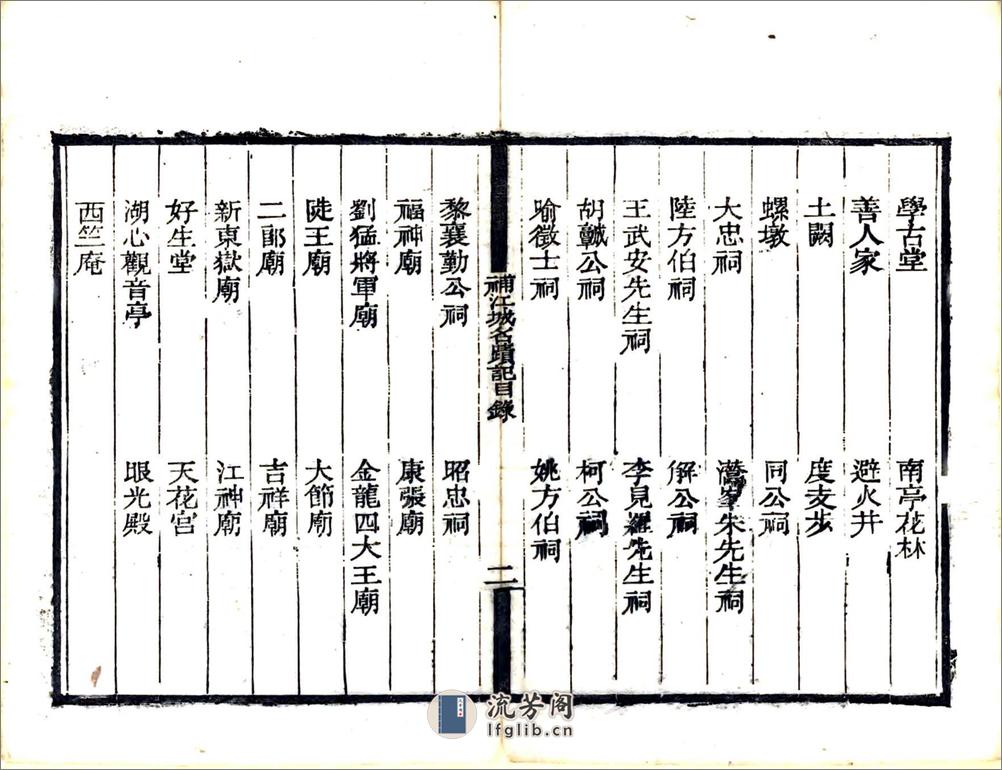 學古堂　南亭花林
善人家　避火井
土闕　度支步
螺墩　同公祠
大忠祠　峯朱先生祠
陸方伯祠　解公祠
王武安先生祠　李見羅先生祠
胡公祠　柯公祠
喻徵士祠　姚方伯祠
補江城名蹟記目錄　二
黎襄勤公祠　昭忠祠
福神廟　康張廟
劉猛將軍廟　金龍四大王廟
陡王廟　大節廟
二郎廟　吉祥廟
新東嶽廟　江神廟
好生堂　天花宮
湖心觀音亭　眼光殿
西竺庵
流芳阁
lfglib.cn